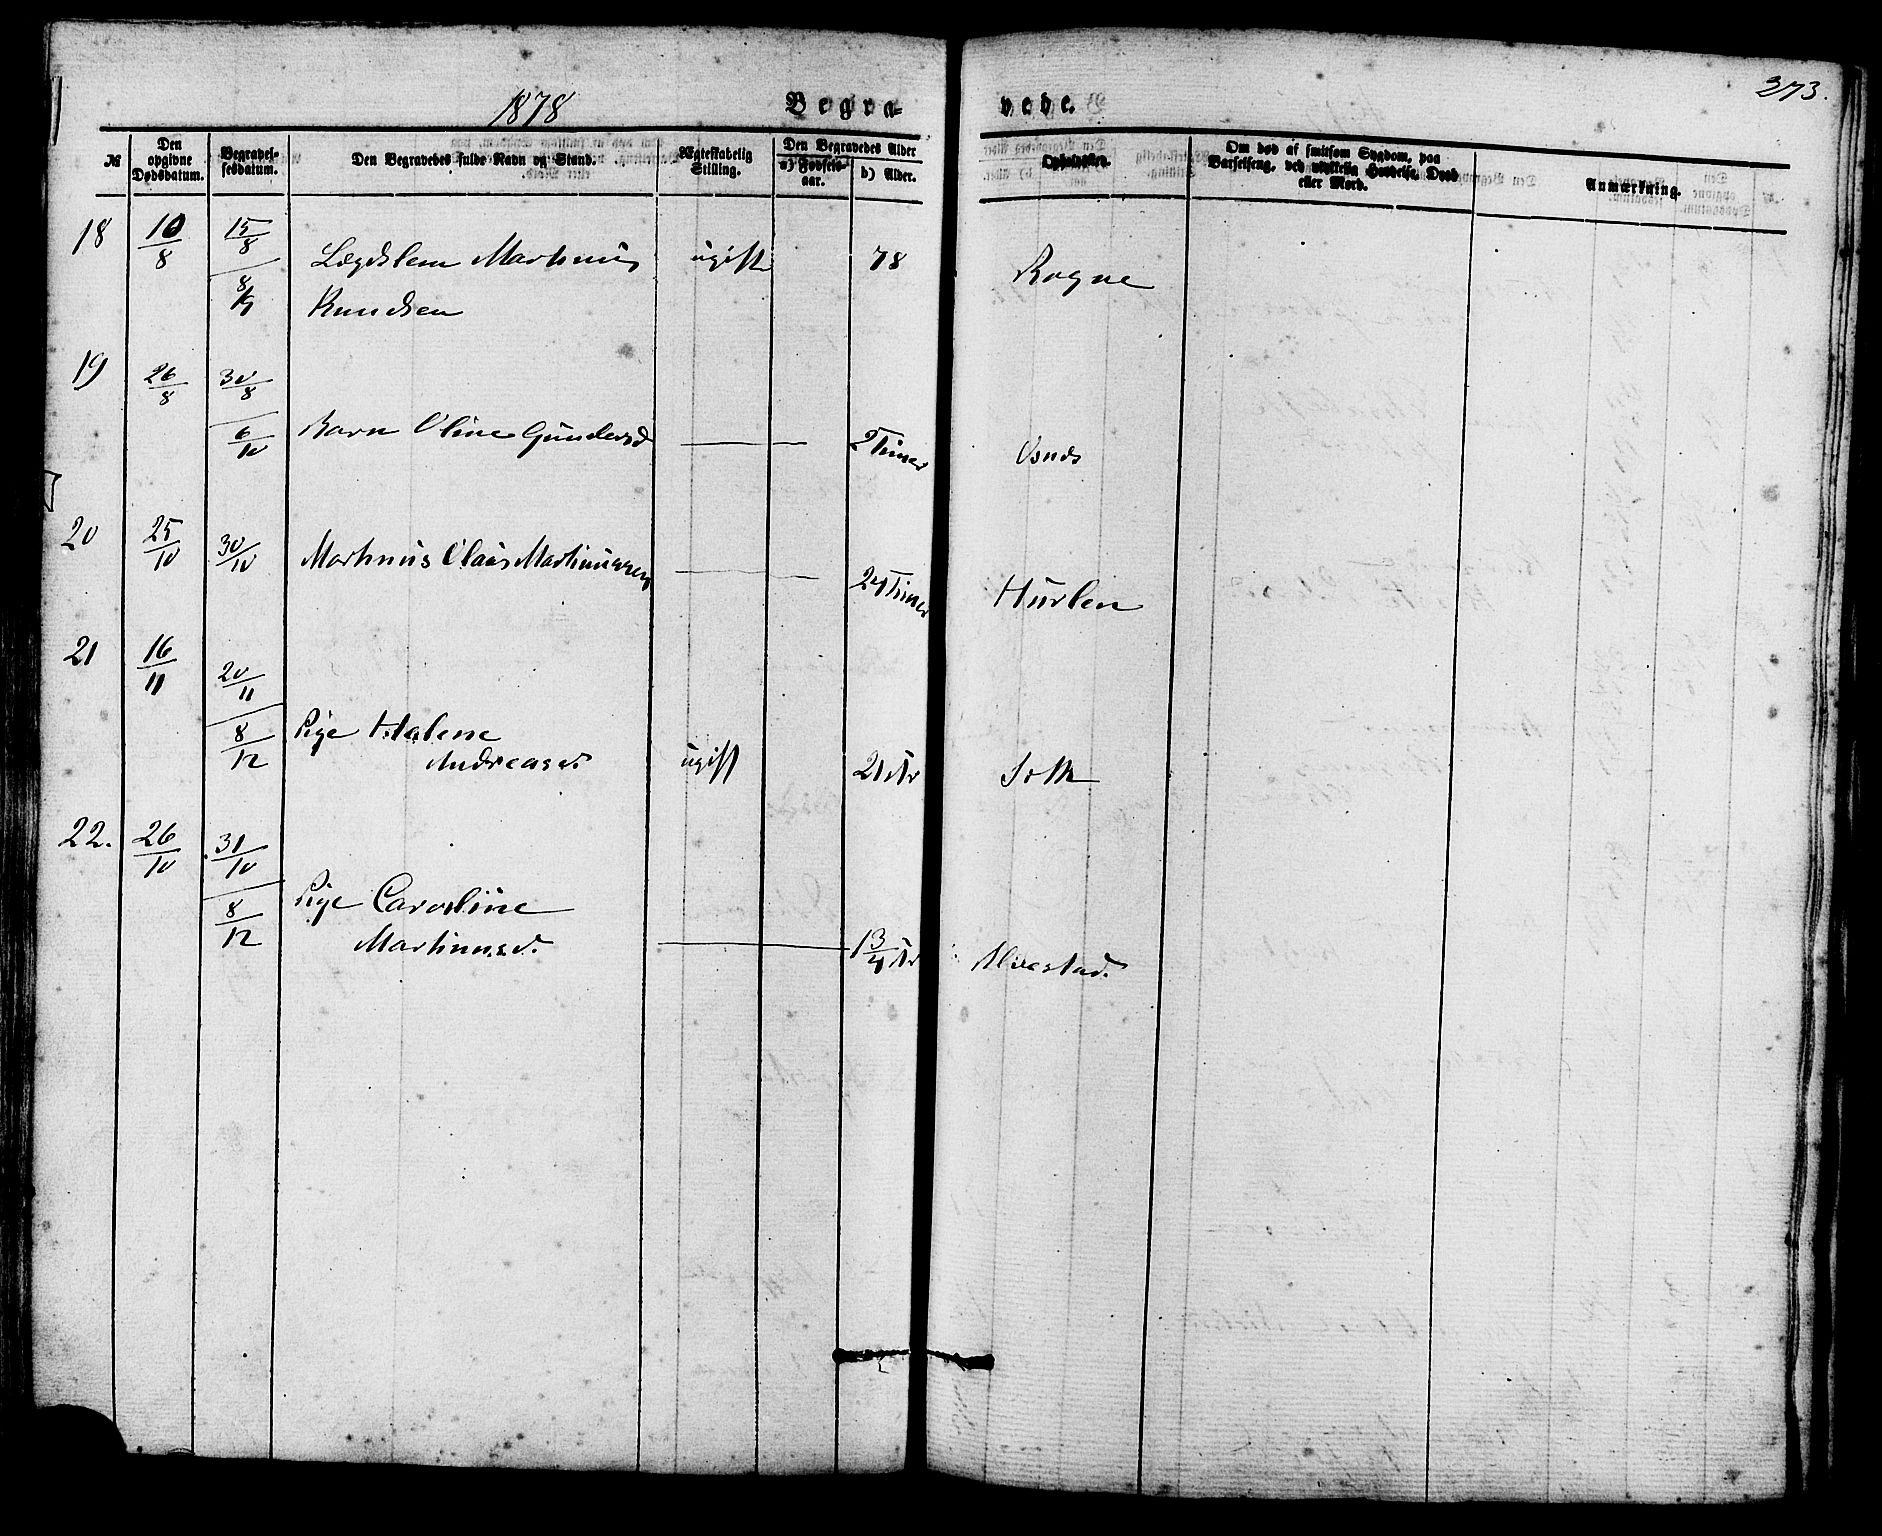 1878
Begra-
vede.
273.
№
Den opgivne Dødsdatum.
Begravelsesdatum.
Den Begravedes fulde Navn og Stand.
Ægteskabelig Stilling.
Den Begravedes Alder
a) Fødselsaar.
b) Alder.
Opholdssted.
Om død af smitsom Sygdom, paa Barselseng, ved ulykkelig Hændelse, Drab eller Mord.
Anmærkning.
18 10/8 15/8 Lægdslem Martinus ugift 78 Rogne
8/9 Knudsen
19 26/8 30/8
6/10 Barn Oline Gundersd — 2 Timer Osnes
20 25/10 30/10 Martinus Claus Martinussen — 24 Timer Hurlen
21 16/11 20/11
8/12 Pige Halene
Andreasd. ugift 21 Ar
22. 26/10 31/10
8/12 Pige Caroline
Martinusd. — 1 3/4 Ar Alvestad.